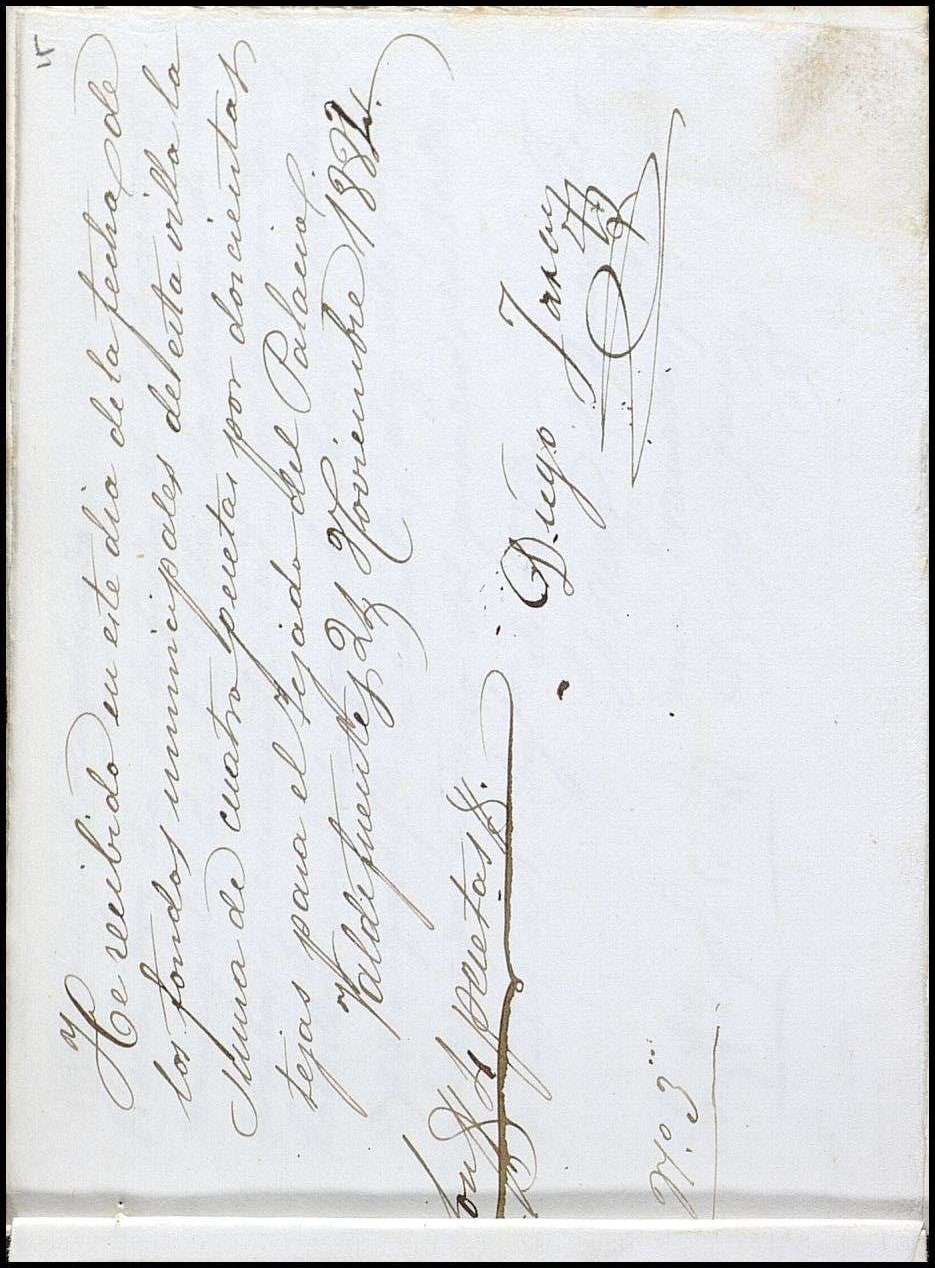 15
He recibido en este dia de la fecha, de
los fondos municipales de esta villa la
suma de cuatro pesetas por doscientas
tejas para el tejado del Palacio.
Valdefuentes 24 Noviembre 1884.
Son # 4 pesetas #.
Diego
N.º 3